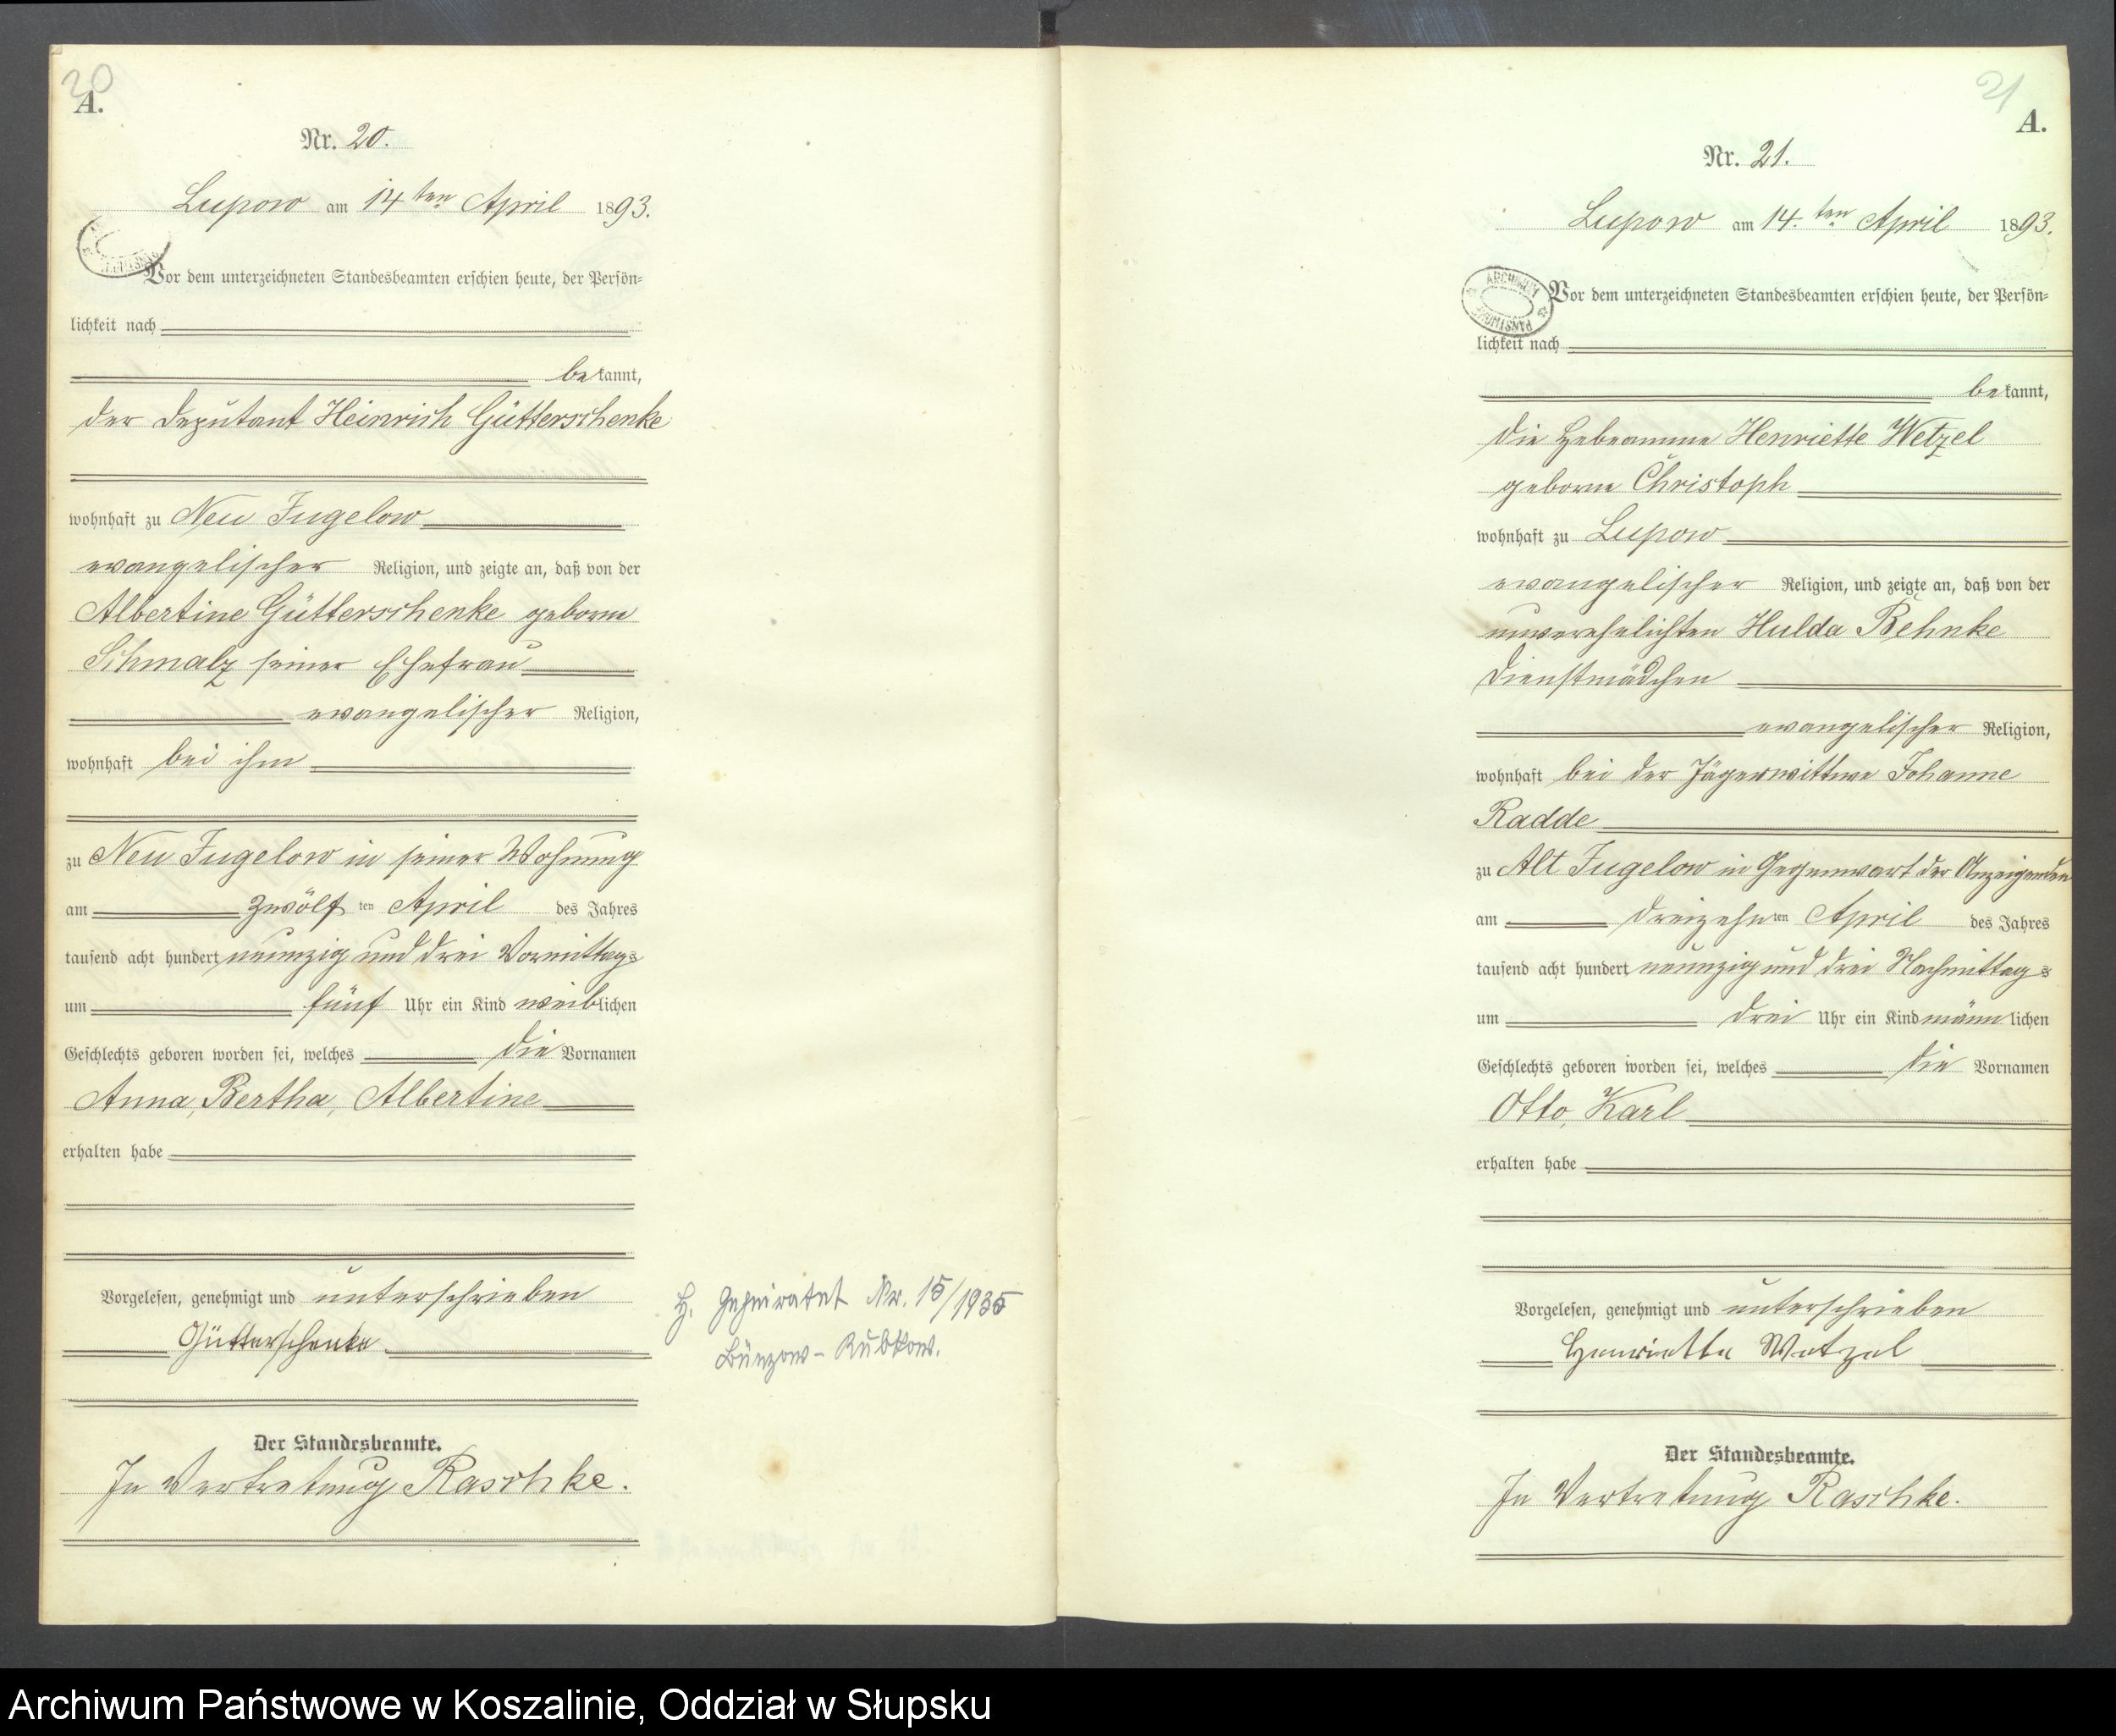 20
A.
Nr. 20.
Lupow am 14ten April 1893.
Vor dem unterzeichneten Standesbeamten erschien heute, der Persön=
lichkeit nach
bekannt,
der Deputant Heinrich Gütterschenke
wohnhaft zu Neu Jugelow
evangelischer Religion, und zeigte an, daß von der
Albertine Gütterschenke geborne
Schmalz seiner Ehefrau
evangelischer Religion,
wohnhaft bei ihm
zu Neu Jugelow in seiner Wohnung
am zwölften April des Jahres
tausend acht hundert neunzig und drei Vormittags
um fünf Uhr ein Kind weiblichen
Geschlechts geboren worden sei, welches die Vornamen
Anna, Bertha, Albertine
erhalten habe
Vorgelesen, genehmigt und unterschrieben
Gütterschenke
Der Standesbeamte.
In Vertretung Raschke.
H. Geheiratet Nr. 15/1935
Bünzow-Rubkow.
21
A.
Nr. 21.
Lupow am 14.ten April 1893.
ARCHIWUM PAŃSTWOWE
Vor dem unterzeichneten Standesbeamten erschien heute, der Persön=
lichkeit nach
bekannt,
die Hebeamme Henriette Wetzel
geborne Christoph
wohnhaft zu Lupow
evangelischer Religion, und zeigte an, daß von der
unverehelichten Hulda Behnke
Dienstmädchen
evangelischer Religion,
wohnhaft bei der Jägerwittwe Johanne
Radde
zu Alt Jugelow in Gegenwart der Anzeigenden
am dreizehnten April des Jahres
tausend acht hundert neunzig und drei Nachmittags
um drei Uhr ein Kind männlichen
Geschlechts geboren worden sei, welches die Vornamen
Otto, Karl
erhalten habe
Vorgelesen, genehmigt und unterschrieben
Henriette Wetzel
Der Standesbeamte.
In Vertretung Raschke.
Archiwum Państwowe w Koszalinie, Oddział w Słupsku